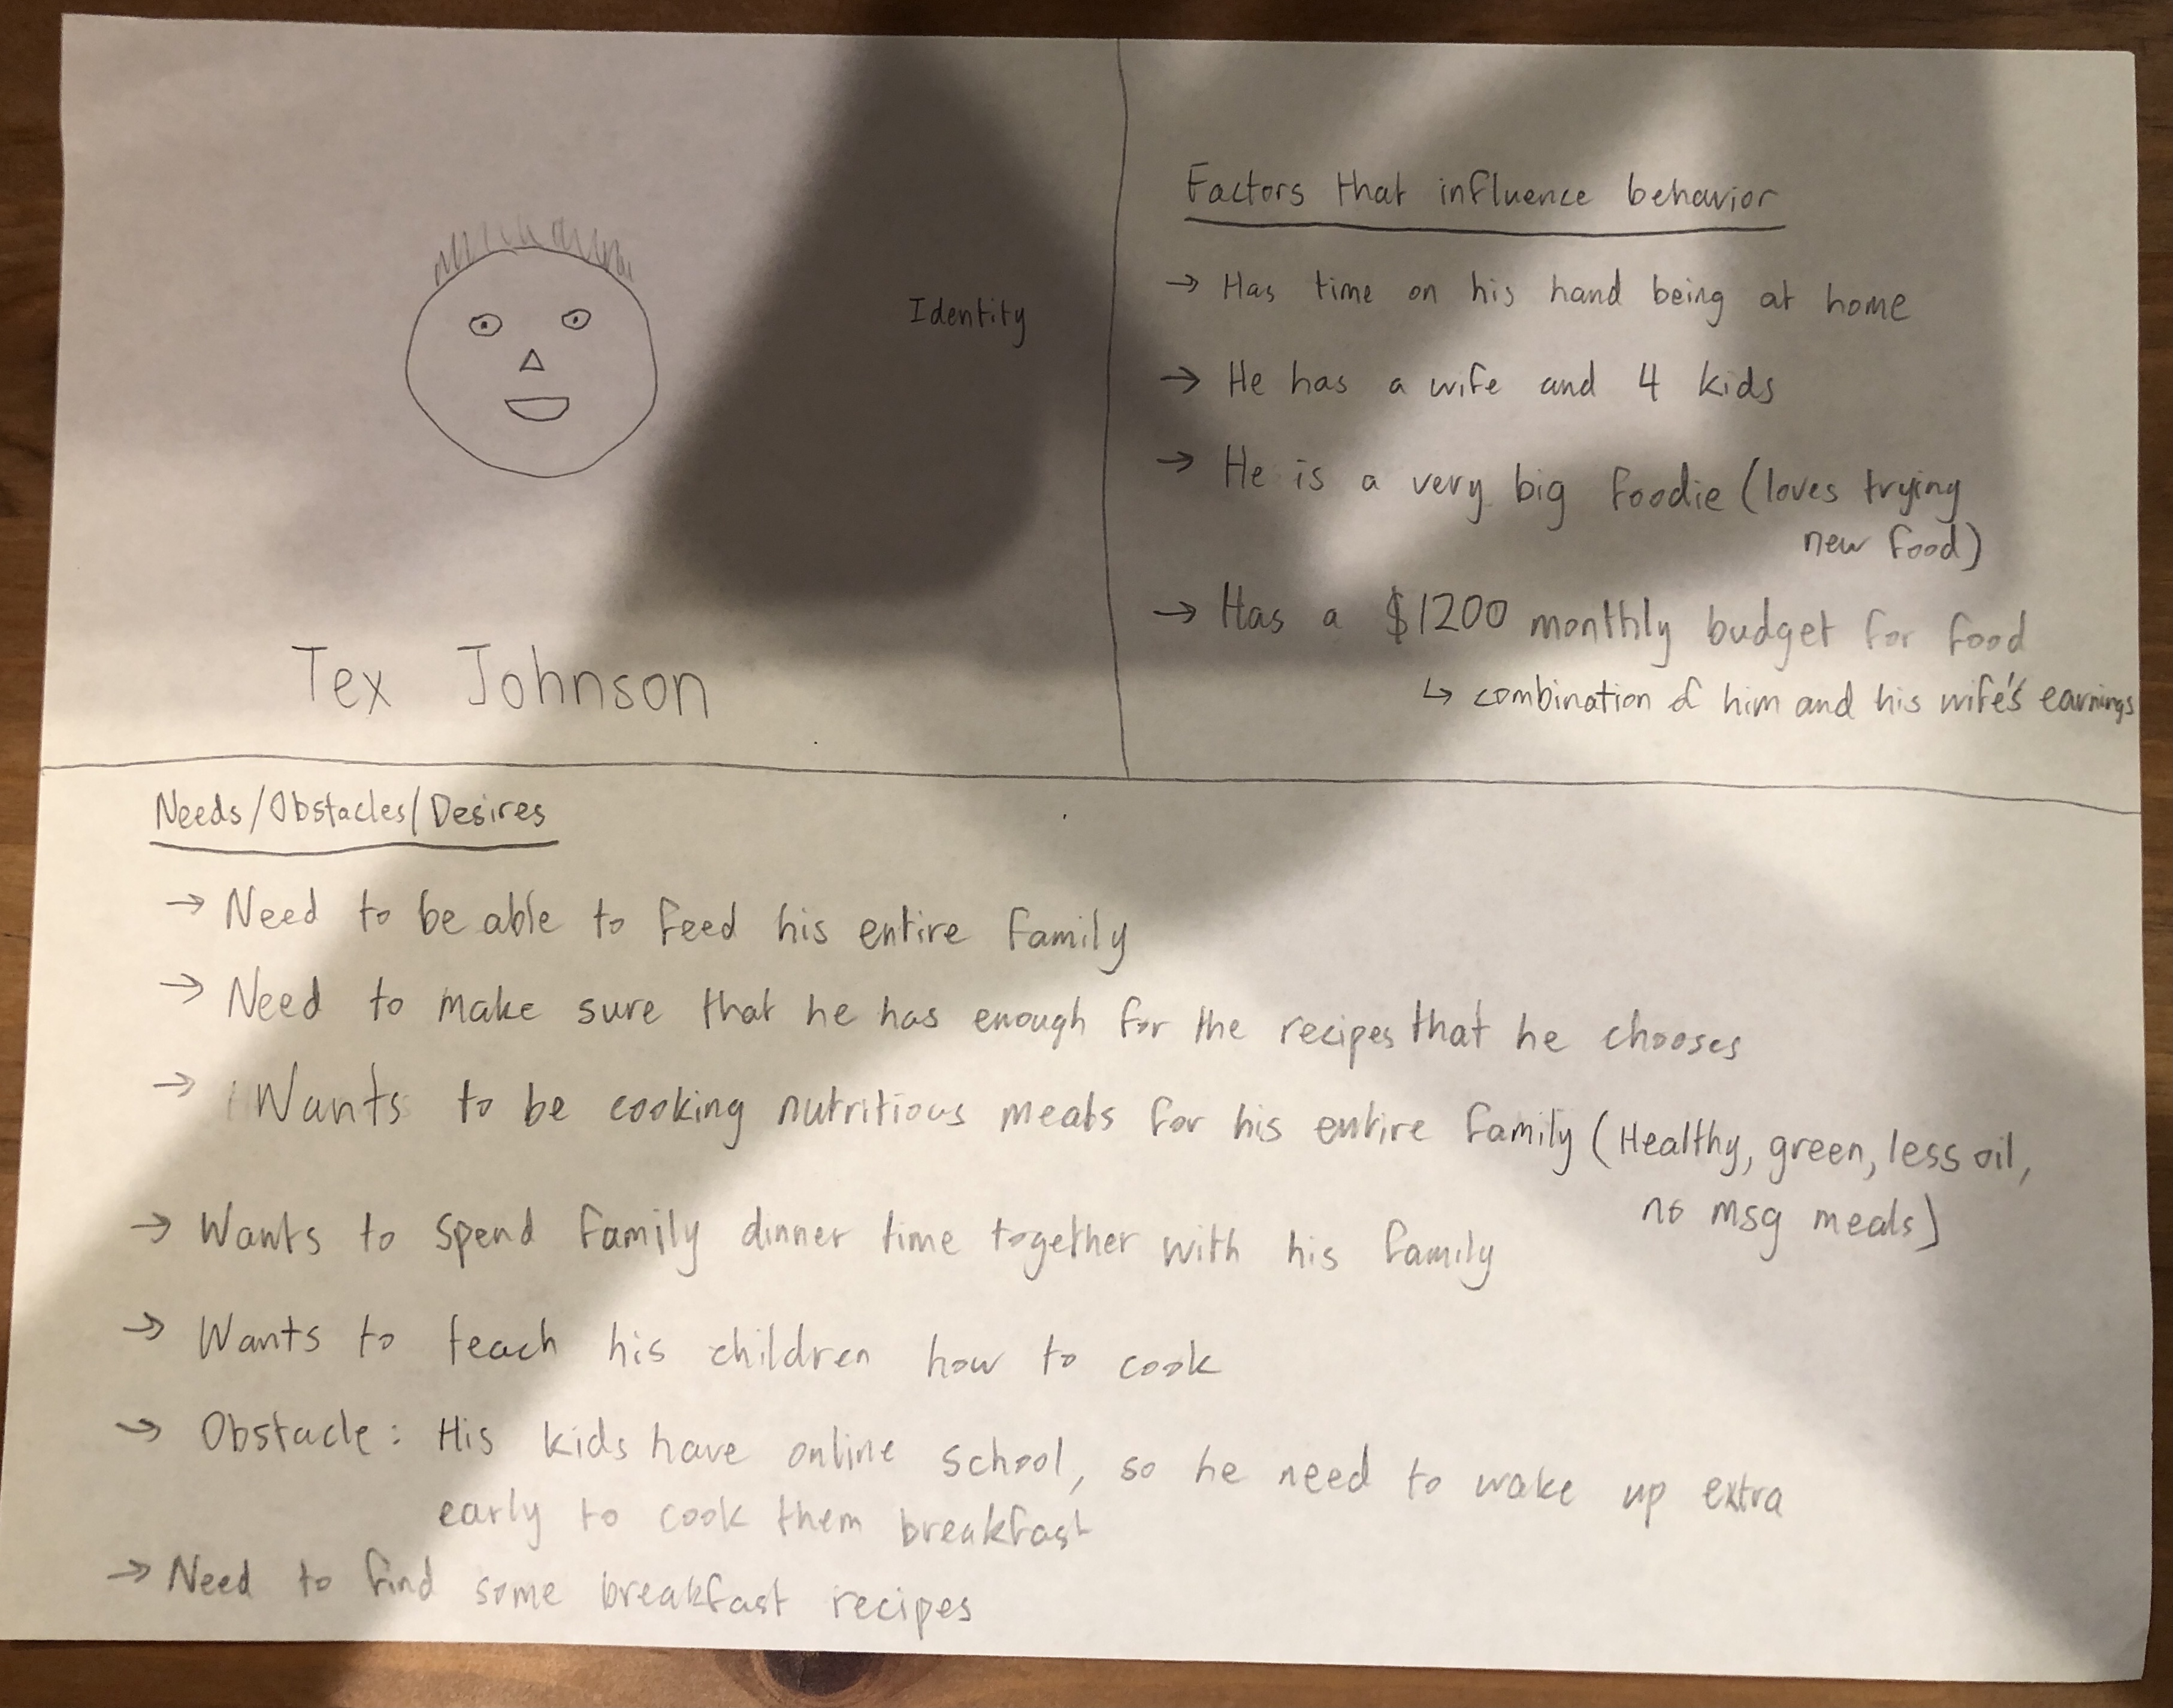 Identity
Tex Johnson
Factors that influence behavior
→ Has time on his hand being at home
→ He has a wife and 4 kids
→ He is a very big foodie (loves trying
new food)
→ Has a $1200 monthly budget for food
↳ combination of him and his wife's earnings
Needs/Obstacles/Desires
→ Need to be able to feed his entire family
→ Need to make sure that he has enough for the recipes that he chooses
→ Wants to be cooking nutritious meals for his entire family (Healthy, green, less oil,
no msg meals)
→ Wants to spend family dinner time together with his family
→ Wants to teach his children how to cook
→ Obstacle: His kids have online school, so he need to wake up extra
early to cook them breakfast
→ Need to find some breakfast recipes